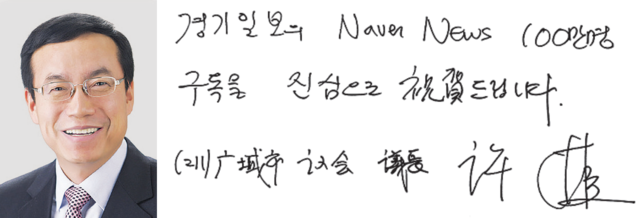 경기일보의 Naver News 100만명
구독을 진심으로 祝賀드립니다.
广城市 议会 議長 许